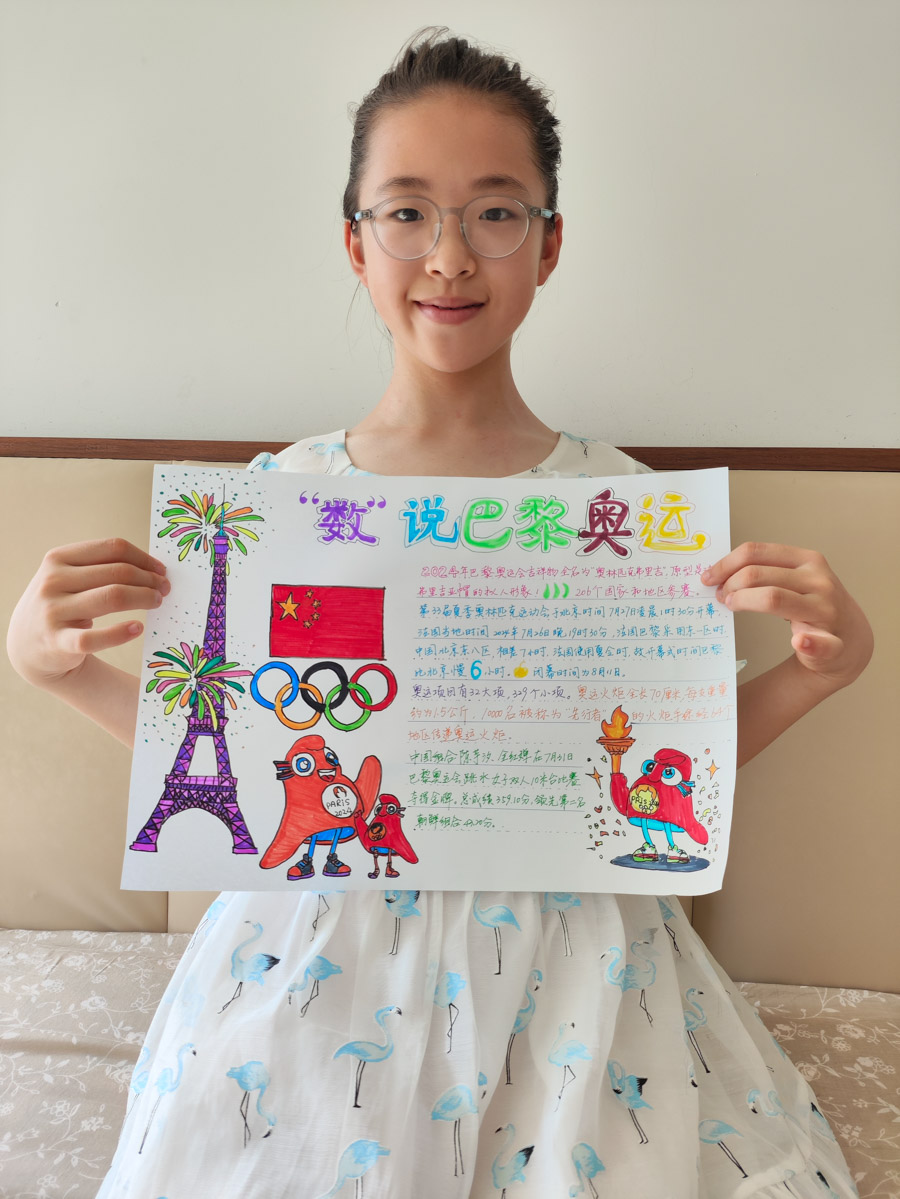 “数”说巴黎奥运
2024年巴黎奥运会吉祥物全名为“奥林匹克弗里吉”，原型是
弗里吉亚帽的拟人形象！206个国家和地区参赛。
第33届夏季奥林匹克运动会于北京时间7月27日凌晨1时30分开幕，
法国当地时间2024年7月26日晚19时30分，法国巴黎采用东一区时，
中国北京东八区，相差7小时，法国使用夏令时，故开幕式时间巴黎
比北京慢6小时。闭幕时间为8月11日。
奥运项目有32大项，329个小项。奥运火炬全长70厘米，每支重量
约为1.5公斤，10000名被称为“先行者”的火炬手跨越64个
地区传递奥运火炬。
中国组合陈芋汐、全红婵在7月31日
巴黎奥运会跳水女子双人10米台比赛
夺得金牌。总成绩359.10分，领先第二名
朝鲜组合43.20分。
PARIS
2024
PARIS